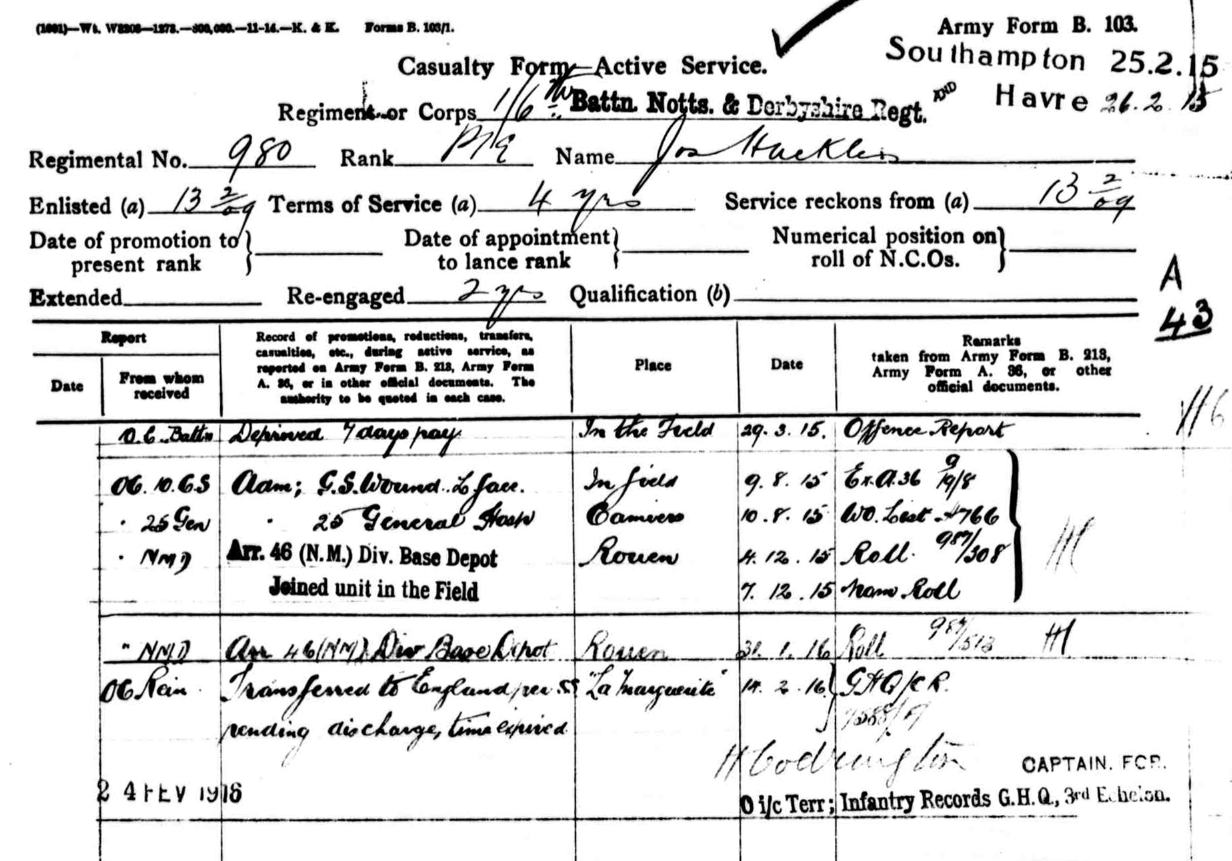 (1691)—Wt. W2206—1273.—300,000.—11-14.—K. & K. Forms B. 103/1.
Army Form B. 103.
Southampton 25.2.15
Casualty Form—Active Service.
AND Havre 26.2.15
Regiment or Corps 1/6th Battn. Notts. & Derbyshire Regt.
Regimental No. 980 Rank Pte Name Jos
Enlisted (a) 13 2/09 Terms of Service (a) 4 yrs Service reckons from (a) 13 2/09
Date of promotion to present rank
Date of appointment to lance rank
Numerical position on roll of N.C.Os.
Extended Re-engaged 2 yrs Qualification (b)
A
43
Report
Date
From whom received
Record of promotions, reductions, transfers,
casualties, etc., during active service, as
reported on Army Form B. 213, Army Form
A. 36, or in other official documents. The
authority to be quoted in each case.
Place
Date
Remarks
taken from Army Form B. 213,
Army Form A. 36, or other
official documents.
O.C. Battn Deprived 7 days pay In the Field 29.3.15. Offence Report
Adm; G.S. Wound L face In field 9.8.15 Ex A.36 9 19/8
" 25 Gen " 25 General Hosp Camiers 10.8.15 WO. List 766
" NMD Arr. 46 (N.M.) Div. Base Depot Rouen 4.12.15 Roll 987/308
Joined unit in the Field 7.12.15 Nom Roll
" NMD Arr 46 (NM) Div Base Depot Rouen 31.1.16 Roll 987/513
OC Rein. Transferred to England per SS "La Marguerite" 14.2.16 GHQ/CR.
pending discharge, time expired
H Codrington CAPTAIN. FOR.
24 FEV 1916
O i/c Terr; Infantry Records G.H.Q., 3rd Echelon.